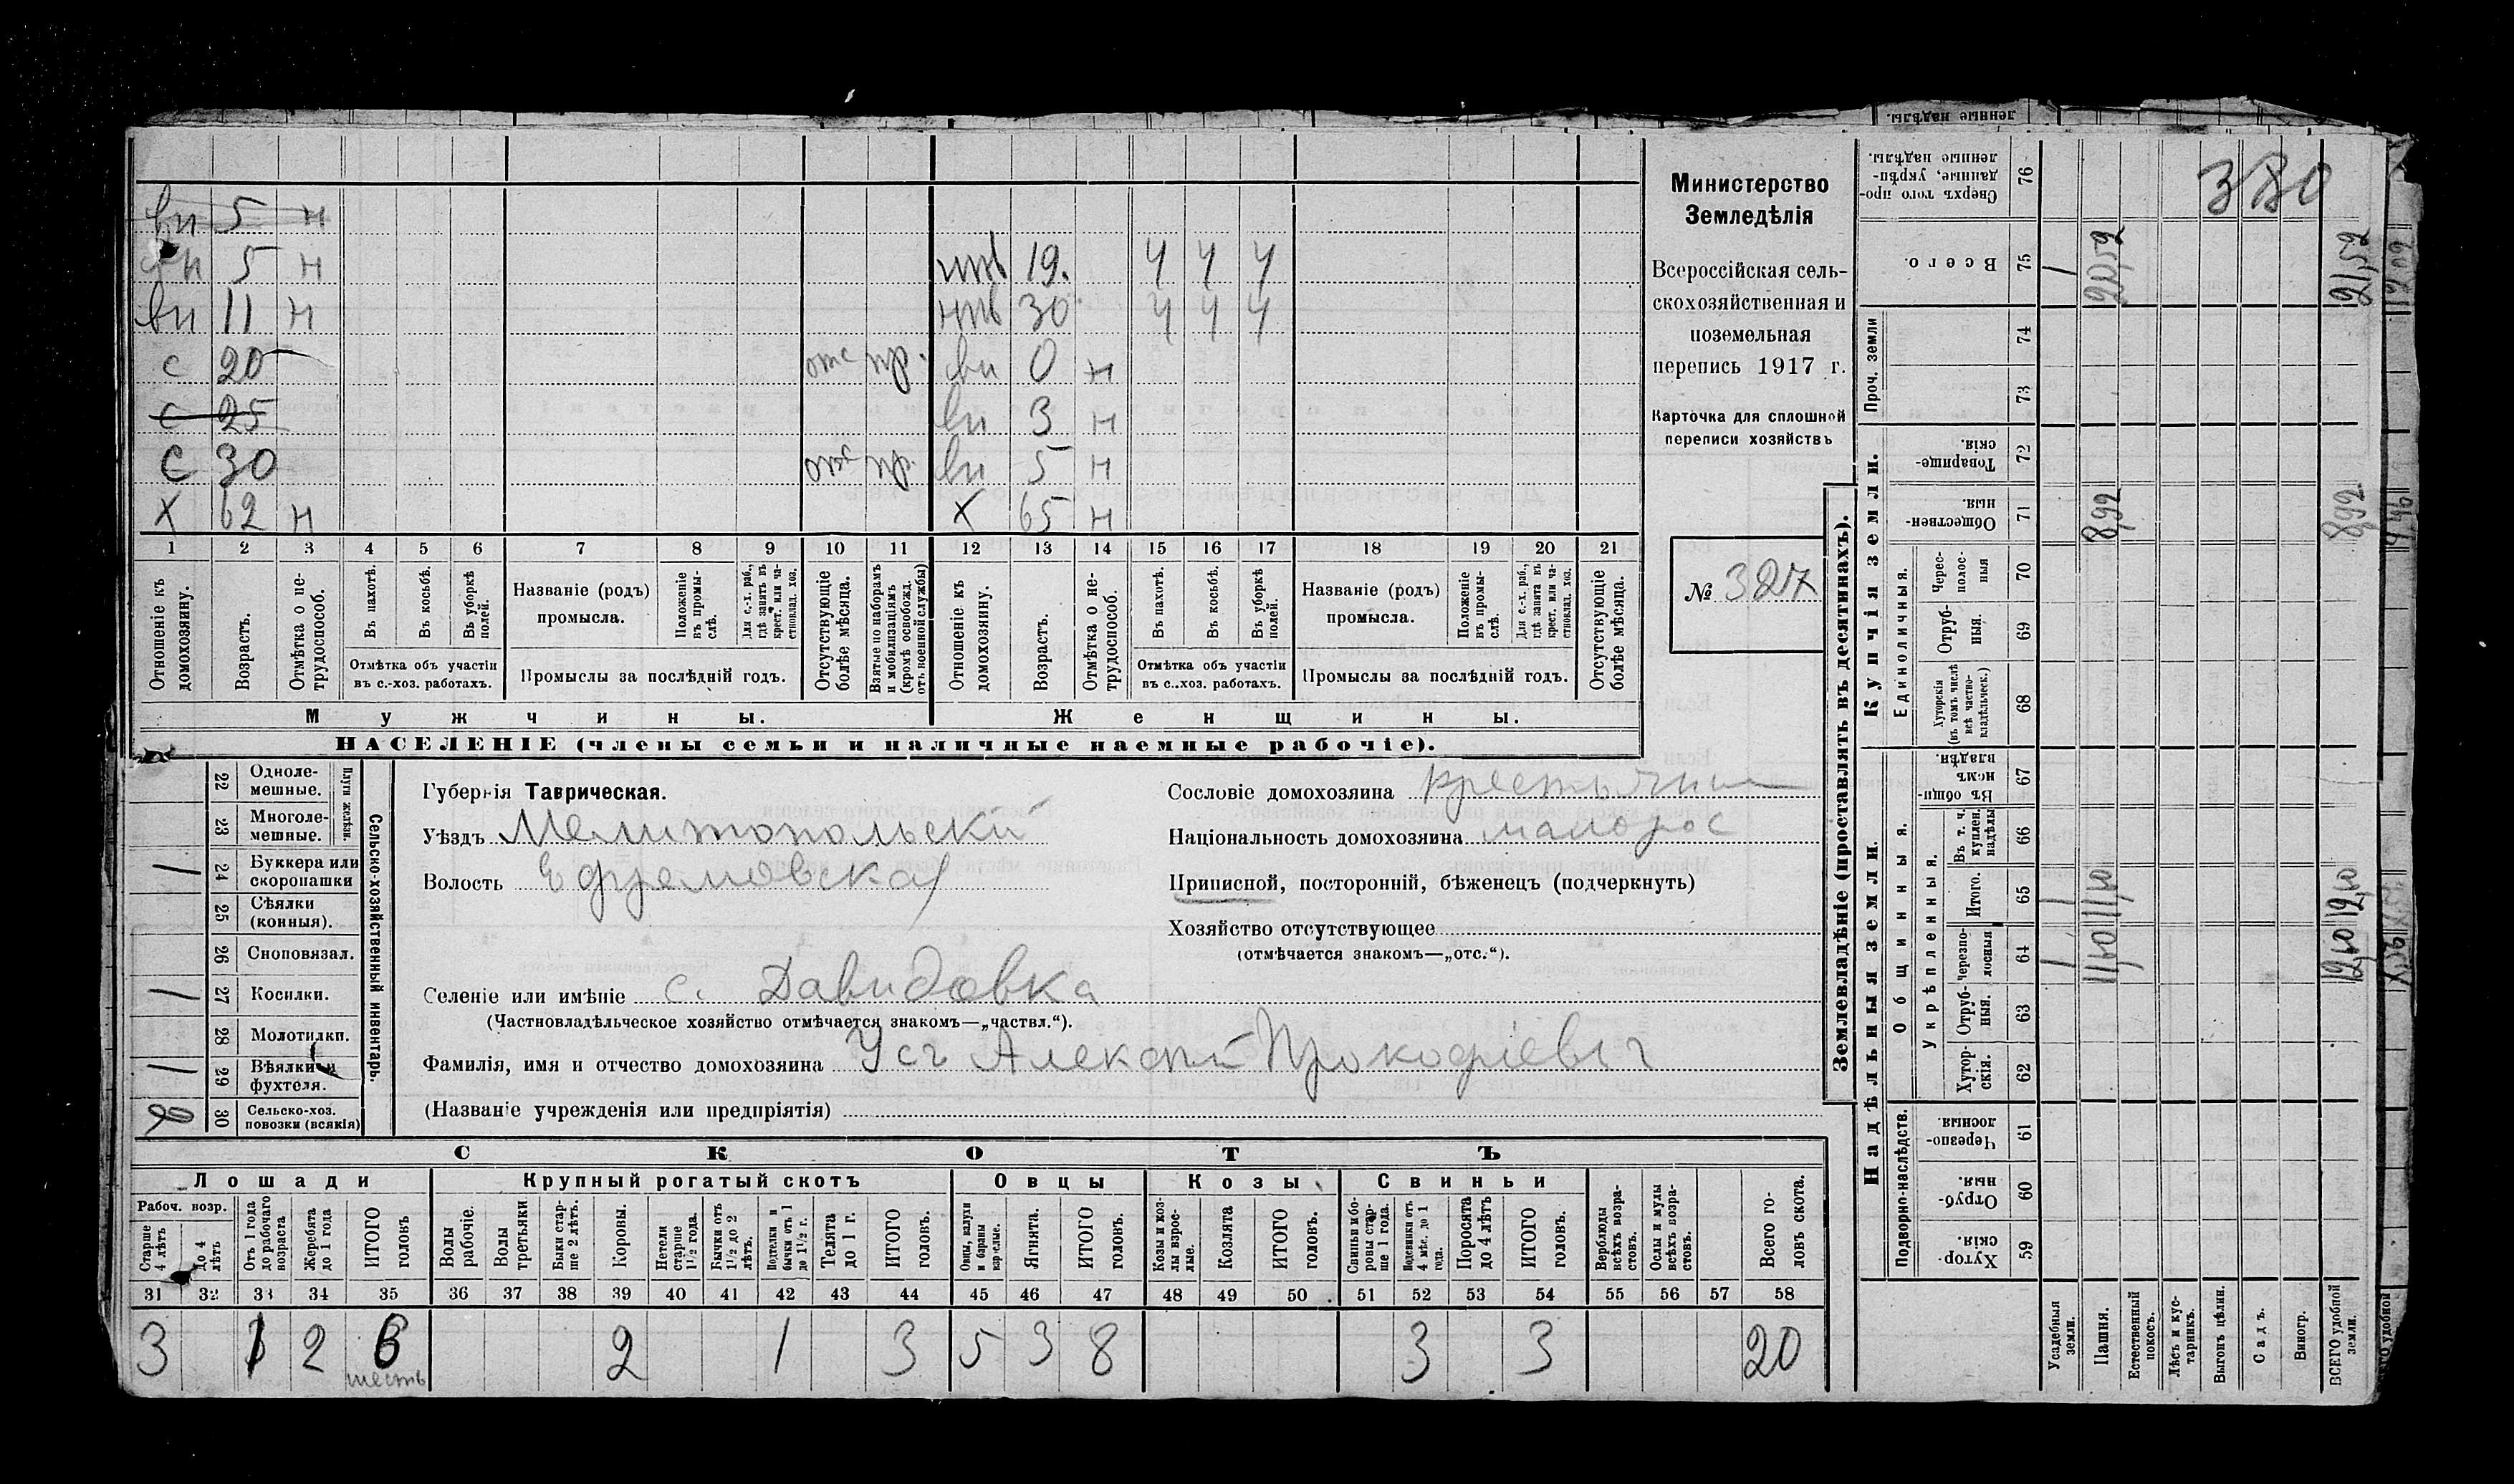 вн 5 н
вн 5 н
нев 19. ч ч ч
вн 11 н
нев 30 ч ч ч
с 20 отс пр. вн 0 н
с 25 вн 3 н
с 30 отс пр. вн 5 н
х 62 н х 65 н
1 2 3 4 5 6 7 8 9 10 11 12 13 14 15 16 17 18 19 20 21
Отношеніе къ домохозяину.
Возрастъ.
Отмѣтка о не-трудоспособ.
Въ пахотѣ.
Въ косьбѣ.
Въ уборкѣ полей.
Отмѣтка объ участіи
въ с.-хоз. работахъ.
Названіе (родъ)
промысла.
Положеніе въ промы-слѣ.
Для с.-х. раб., гдѣ занятъ въ крест. или ча-стновлад. хоз.
Промыслы за послѣдній годъ.
Отсутствующіе болѣе мѣсяца.
Взятые по наборамъ и мобилизаціямъ (кромѣ освобожд. отъ военной службы)
Отношеніе къ домохозяину.
Возрастъ.
Отмѣтка о не-трудоспособ.
Въ пахотѣ.
Въ косьбѣ.
Въ уборкѣ полей.
Отмѣтка объ участіи
въ с.-хоз. работахъ.
Названіе (родъ)
промысла.
Положеніе въ промы-слѣ.
Для с.-х. раб., гдѣ занята въ крест. или ча-стновлад. хоз.
Промыслы за послѣдній годъ.
Отсутствующіе болѣе мѣсяца.
Мужчины. Женщины.
НАСЕЛЕНІЕ (члены семьи и наличные наемные рабочіе).
Министерство
Земледѣлія
Всероссійская сель-
скохозяйственная и
поземельная
перепись 1917 г.
Карточка для сплошной
переписи хозяйствъ
№ 327
22 Однолемешные.
23 Многолемешные.
Плуги желѣзн.
/ 24 Буккера или скоропашки
25 Сѣялки (конныя).
26 Сноповязал.
/ 27 Косилки.
28 Молотилки.
/ 29 Вѣялки и фухтеля.
2 30 Сельско-хоз. повозки (всякія)
Сельско-хозяйственный инвентарь.
Губернія Таврическая.
Уѣздъ Мелитопольскій
Волость Ефремовская
Сословіе домохозяина крестьянин
Національность домохозяина малорос
Приписной, посторонній, бѣженецъ (подчеркнуть)
Хозяйство отсутствующее
(отмѣчается знакомъ—„отс.“).
Селеніе или имѣніе с. Давидовка
(Частновладѣльческое хозяйство отмѣчается знакомъ—„частвл.“).
Фамилія, имя и отчество домохозяина Усъ Алексѣй Прокофіевич
(Названіе учрежденія или предпріятія)
СКОТЪ
Лошади Крупный рогатый скотъ Овцы Козы Свиньи
Рабоч. возр.
Старше 4 лѣтъ
До 4 лѣтъ
Отъ 1 года до рабочаго возраста
Жеребята до 1 года
ИТОГО головъ
Волы рабочіе.
Волы третьяки
Быки стар-ше 2 лѣтъ.
Коровы.
Нетели старше 1½ года.
Бычки отъ 1½ до 2 лѣтъ.
Подтелки и бычки отъ 1 до 1½ г.
Телята до 1 г.
ИТОГО головъ.
Овцы, валухи и бараны взрослые.
Ягнята.
ИТОГО головъ.
Козы и коз-лы взрос-лые.
Козлята
ИТОГО головъ.
Свиньи и бо-ровы стар-ше 1 года.
Подсвинки отъ 4 мѣс. до 1 года.
Поросята до 4 лѣтъ
ИТОГО головъ.
Верблюды всѣхъ возра-стовъ.
Ослы и мулы всѣхъ возра-стовъ.
Всего го-ловъ скота.
31 32 33 34 35 36 37 38 39 40 41 42 43 44 45 46 47 48 49 50 51 52 53 54 55 56 57 58
3 1 2 6 2 1 3 5 3 8 3 3 20
шесть
Землевладѣніе (проставлять въ десятинахъ).
Надѣльныя земли. Купчія земли.
Подворно-наслѣдств.
Общинныя.
Укрѣпленныя.
Единоличныя.
Проч. земли
ленные надѣлы.
Сверхъ того про-данные, укрѣп-ленные надѣлы. 76 380
Всего. 75 / 20,52 21,52
74
73
Товарище-скія. 72
Обществен-ныя 71 8,92 8,92
Черес-полос-ныя 70
Отруб-ныя. 69
Хуторскія (въ томъ числѣ всѣ частно-владѣльческ.) 68
Въ общи-номъ владѣн. 67
Въ т. ч. куплен. надѣлы 66
Итого. 65 1 11,60 12,60
Черезпо-лосныя 64 1 11,60 12,60
Отруб-ныя. 63
Хутор-скія. 62
Черезпо-лосныя. 61
Отруб-ныя. 60
Хутор-скія. 59
Усадебныя земли.
Пашня.
Естественный покосъ.
Лѣсъ и кус-тарникъ.
Выгонъ цѣлин.
Садъ.
Виногр.
ВСЕГО удобной земли.